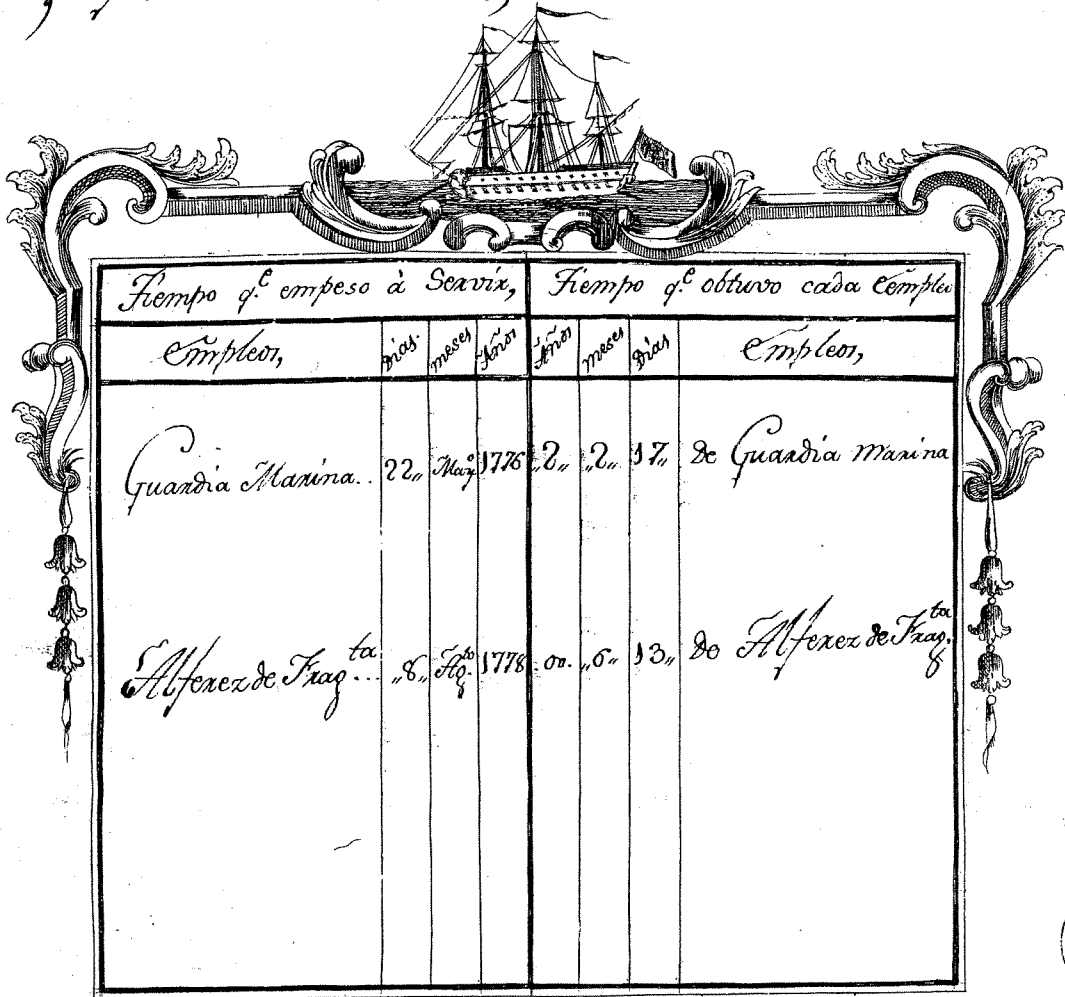 Tiempo q.e empeso à Servir, Tiempo q.e obtuvo cada Empleo
Empleos, Dias. meses Años Años meses Dias Empleos,
Guardia Marina.. 22,, May.o 1776 ,,2,, ,,2,, 17,, De Guardia marina
Alferez de Frag.ta... ,,8,, Ag.to 1778 ,,00,, ,,6,, 13,, De Alferez de Frag.ta